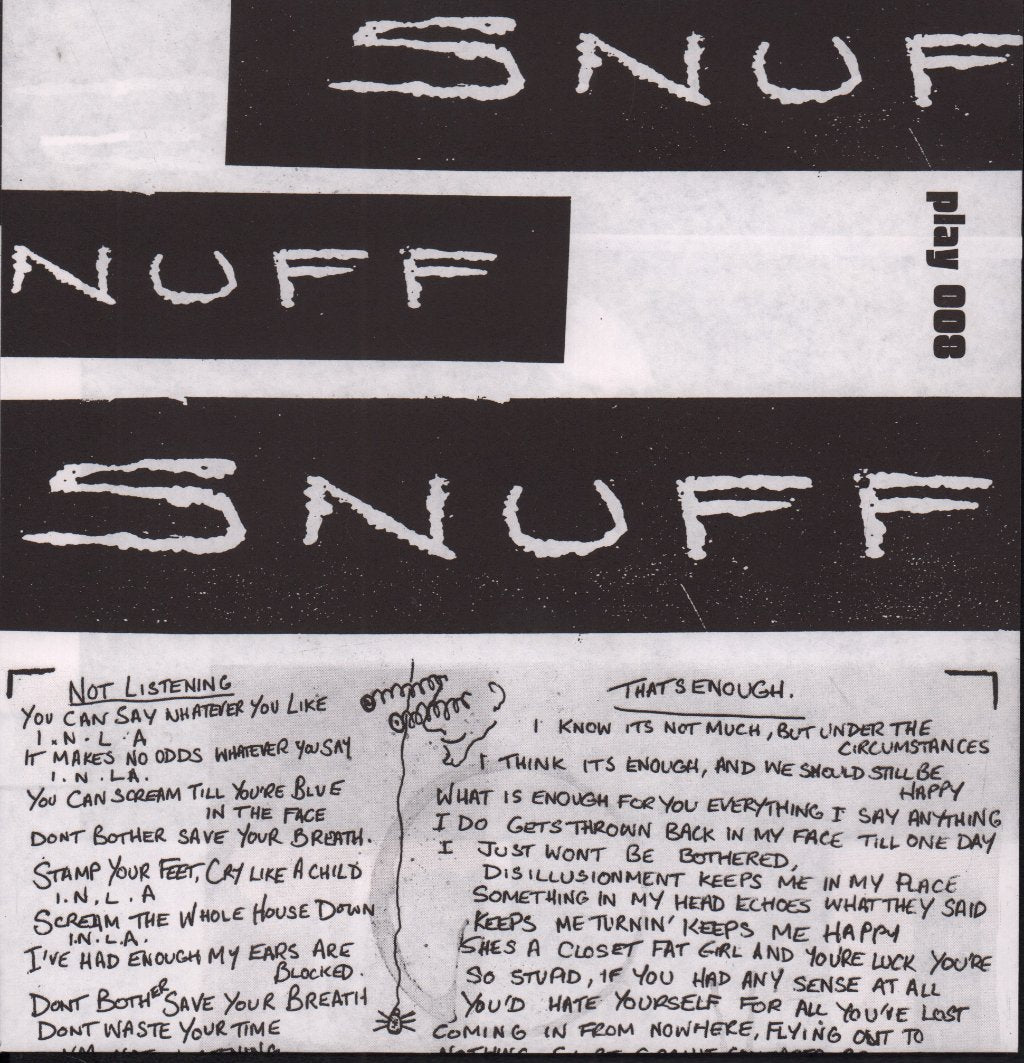 SNUF
NUFF
play 008
SNUFF
NOT LISTENING
YOU CAN SAY WHATEVER YOU LIKE
I.N.L A
IT MAKES NO ODDS WHATEVER YOU SAY
I.N.LA.
YOU CAN SCREAM TILL YOU'RE BLUE
IN THE FACE
DONT BOTHER SAVE YOUR BREATH.
STAMP YOUR FEET, CRY LIKE A CHILD
I.N.L.A
SCREAM THE WHOLE HOUSE DOWN
I.N.L.A.
I'VE HAD ENOUGH MY EARS ARE
BLOCKED.
DONT BOTHER SAVE YOUR BREATH
DONT WASTE YOUR TIME
I'M NOT LISTENING
THATS ENOUGH.
I KNOW ITS NOT MUCH, BUT UNDER THE
CIRCUMSTANCES
I THINK ITS ENOUGH, AND WE SHOULD STILL BE
HAPPY
WHAT IS ENOUGH FOR YOU EVERYTHING I SAY ANYTHING
I DO GETS THROWN BACK IN MY FACE TILL ONE DAY
I JUST WONT BE BOTHERED,
DISILLUSIONMENT KEEPS ME IN MY PLACE
SOMETHING IN MY HEAD ECHOES WHAT THEY SAID
KEEPS ME TURNIN' KEEPS ME HAPPY
SHES A CLOSET FAT GIRL AND YOU'RE LUCK YOU'RE
SO STUPID, IF YOU HAD ANY SENSE AT ALL
YOU'D HATE YOURSELF FOR ALL YOU'VE LOST
COMING IN FROM NOWHERE, FLYING OUT TO